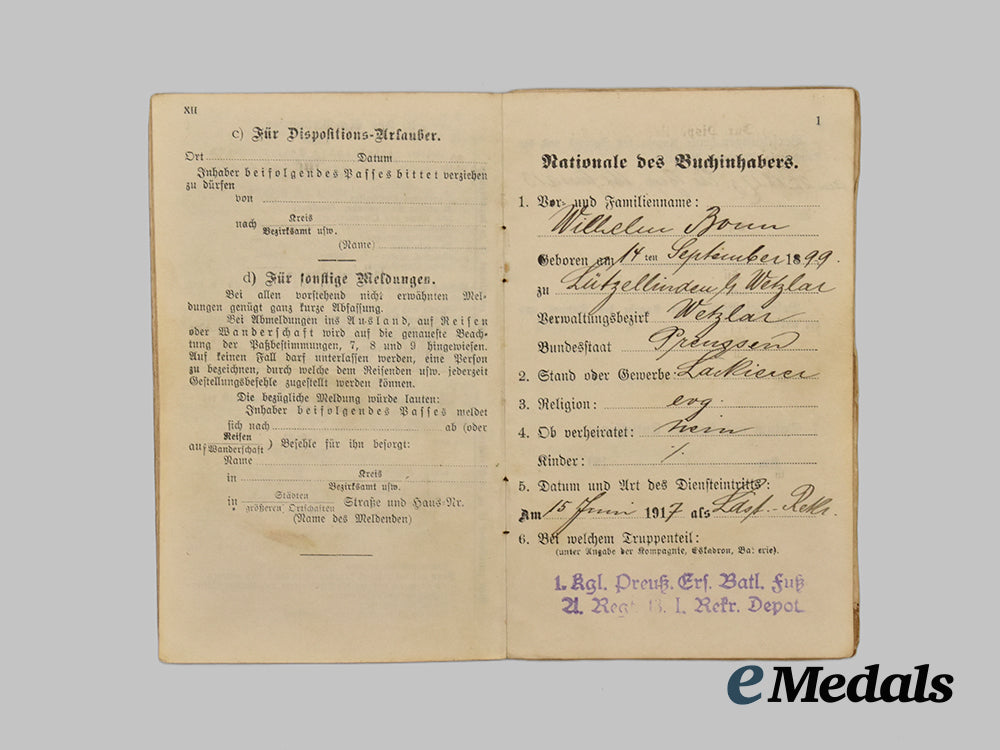 XII
c) Für Dispositions-Urlauber.
Ort Datum
Inhaber beifolgendes Passes bittet verziehen
zu dürfen
von
nach Kreis
Bezirksamt usw.
(Name)
d) Für sonstige Meldungen.
Bei allen vorstehend nicht erwähnten Mel-
dungen genügt ganz kurze Abfassung.
Bei Abmeldungen ins Ausland, auf Reisen
oder Wanderschaft wird auf die genaueste Beach-
tung der Paßbestimmungen, 7, 8 und 9 hingewiesen.
Auf keinen Fall darf unterlassen werden, eine Person
zu bezeichnen, durch welche dem Reisenden usw. jederzeit
Gestellungsbefehle zugestellt werden können.
Die bezügliche Meldung würde lauten:
Inhaber beifolgendes Passes meldet
sich nach ab (oder
auf Reisen
Wanderschaft) Befehle für ihn besorgt:
Name
in Kreis
Bezirksamt usw.
in Städten
größeren Ortschaften Straße und Haus-Nr.
(Name des Meldenden)
1
Nationale des Buchinhabers.
1. Vor- und Familienname:
Wilhelm Bonn
Geboren am 14 ten September 1899.
zu Lützellinden b/ Wetzlar
Verwaltungsbezirk Wetzlar
Bundesstaat Preussen
2. Stand oder Gewerbe: Lackierer
3. Religion: evg.
4. Ob verheiratet: nein
Kinder: ./.
5. Datum und Art des Diensteintritts:
Am 15 Juni 1917 als Ldst.-Rekr.
6. Bei welchem Truppenteil:
(unter Angabe der Kompagnie, Eskadron, Batterie).
1. Kgl. Preuß. Ers. Batl. Fuß
A. Regt. I. Rekr. Depot
eMedals